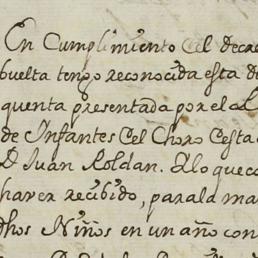 En Cumplimiento del decre
buelta tengo reconocida esta d
quenta presentada por el
de Infantes del Choro desta
D. Juan Roldan. A lo que co
haver recibido, para la ma
dhos Niños en un año con